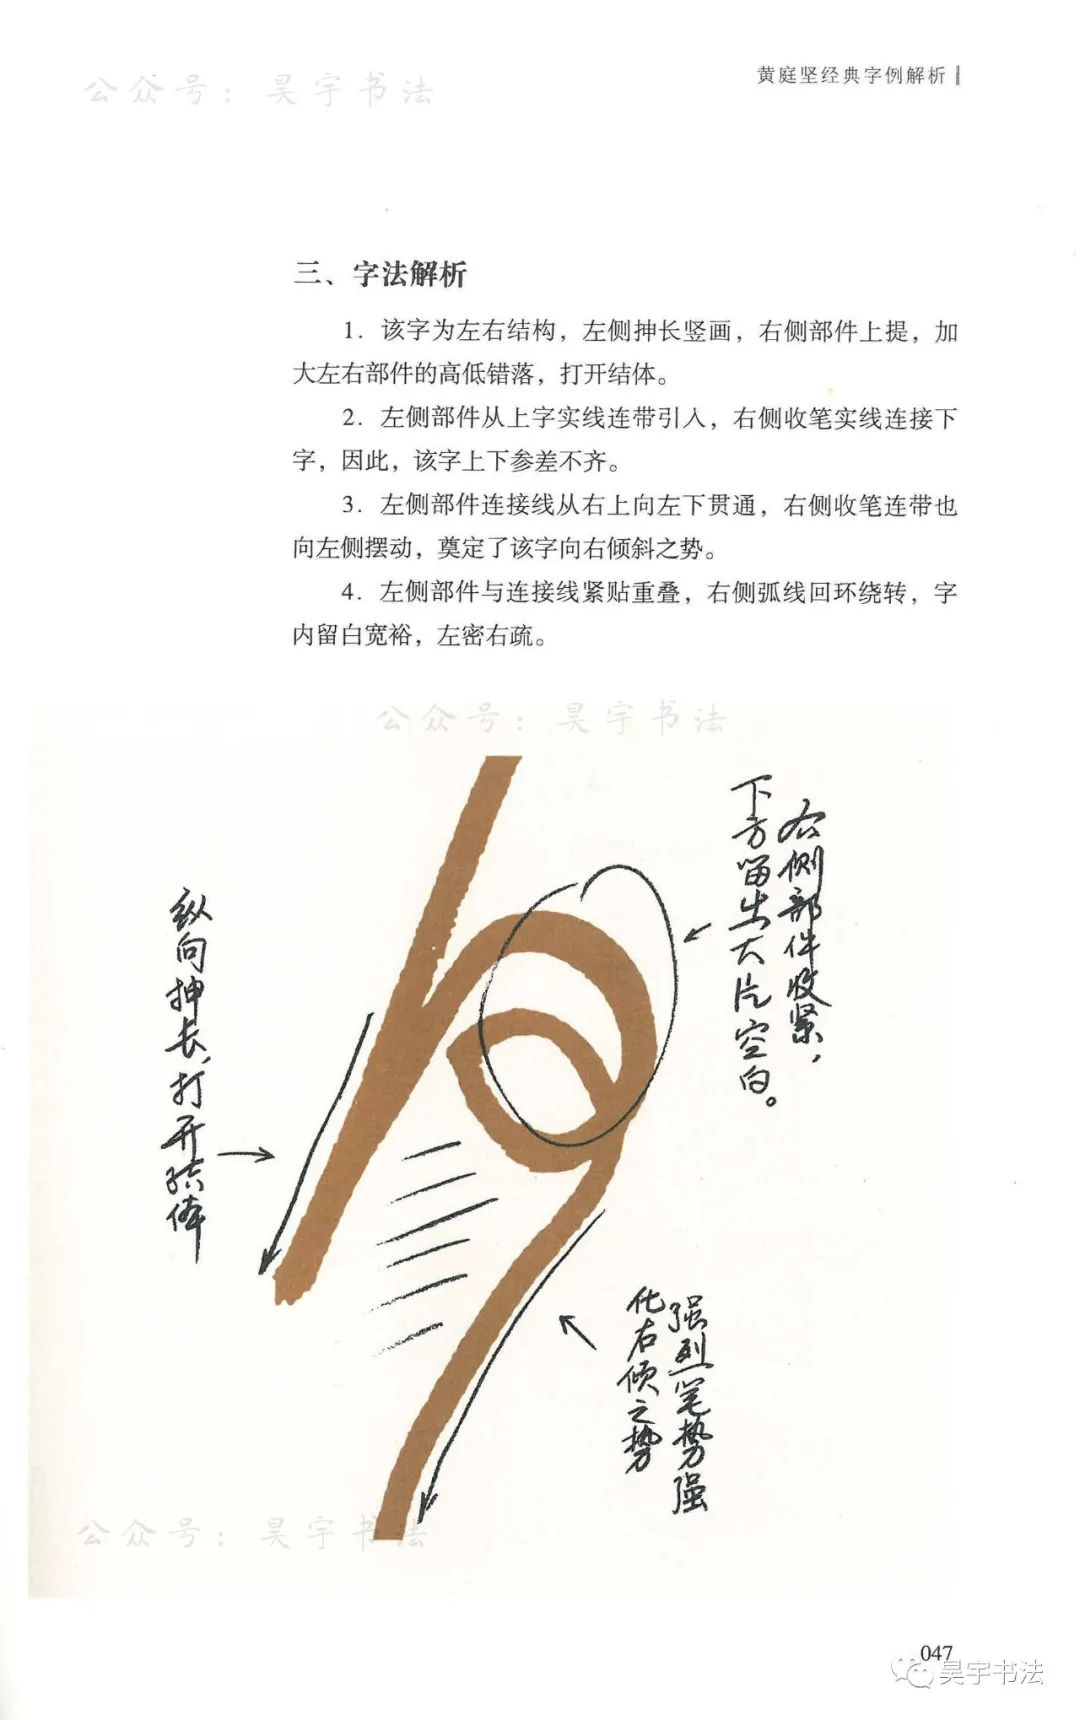 公众号：昊宇书法
黄庭坚经典字例解析
三、字法解析
1．该字为左右结构，左侧抻长竖画，右侧部件上提，加
大左右部件的高低错落，打开结体。
2．左侧部件从上字实线连带引入，右侧收笔实线连接下
字，因此，该字上下参差不齐。
3．左侧部件连接线从右上向左下贯通，右侧收笔连带也
向左侧摆动，奠定了该字向右倾斜之势。
4．左侧部件与连接线紧贴重叠，右侧弧线回环绕转，字
内留白宽裕，左密右疏。
公众号：昊宇书法
右侧部件收紧，
下方留出大片空白。
纵向抻长，打开结体
强烈笔势强
化右倾之势
公众号：昊宇书法
047
昊宇书法